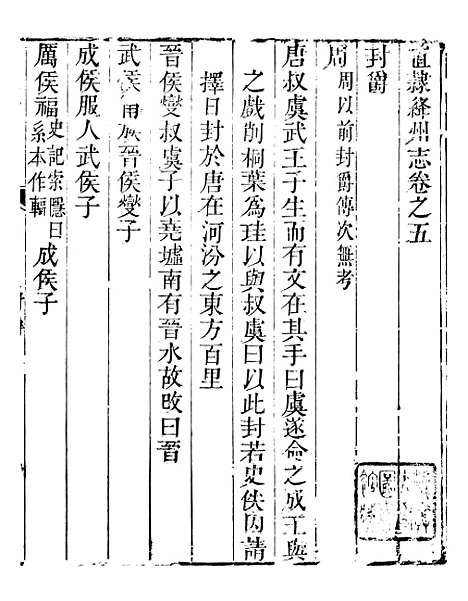 直隸絳州志卷之五
封爵
周周以前封爵傳次無考
唐叔虞武王子生而有文在其手曰虞遂命之成王與
之戲削桐葉為珪以與叔虞曰以此封若史佚因請
擇日封於唐在河汾之東方百里
晉侯燮叔虞子以堯墟南有晉水故改曰晉
武侯 族晉侯燮子
成侯服人武侯子
厲侯福史記索隱曰系本作輻成侯子